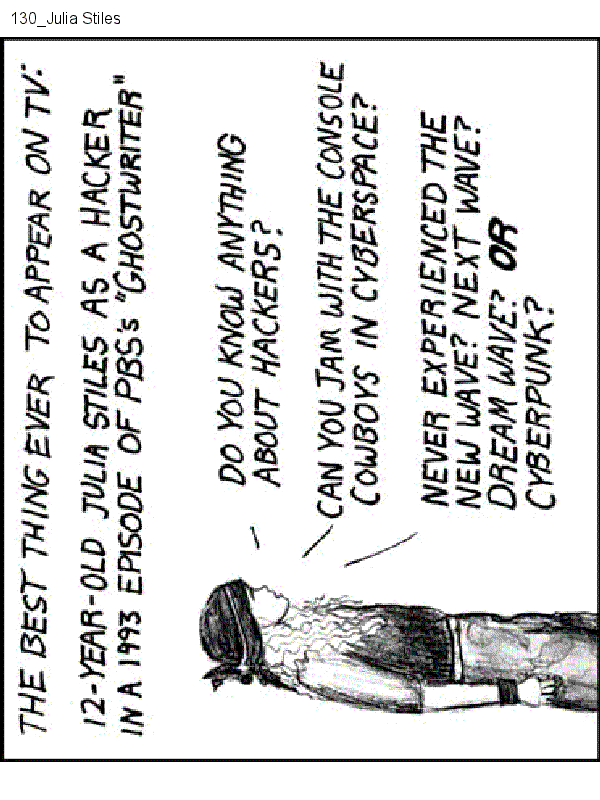 130_Julia Stiles
THE BEST THING EVER TO APPEAR ON TV:
12-YEAR-OLD JULIA STILES AS A HACKER
IN A 1993 EPISODE OF PBS's "GHOSTWRITER"
DO YOU KNOW ANYTHING
ABOUT HACKERS?
CAN YOU JAM WITH THE CONSOLE
COWBOYS IN CYBERSPACE?
NEVER EXPERIENCED THE
NEW WAVE? NEXT WAVE?
DREAM WAVE? OR
CYBERPUNK?